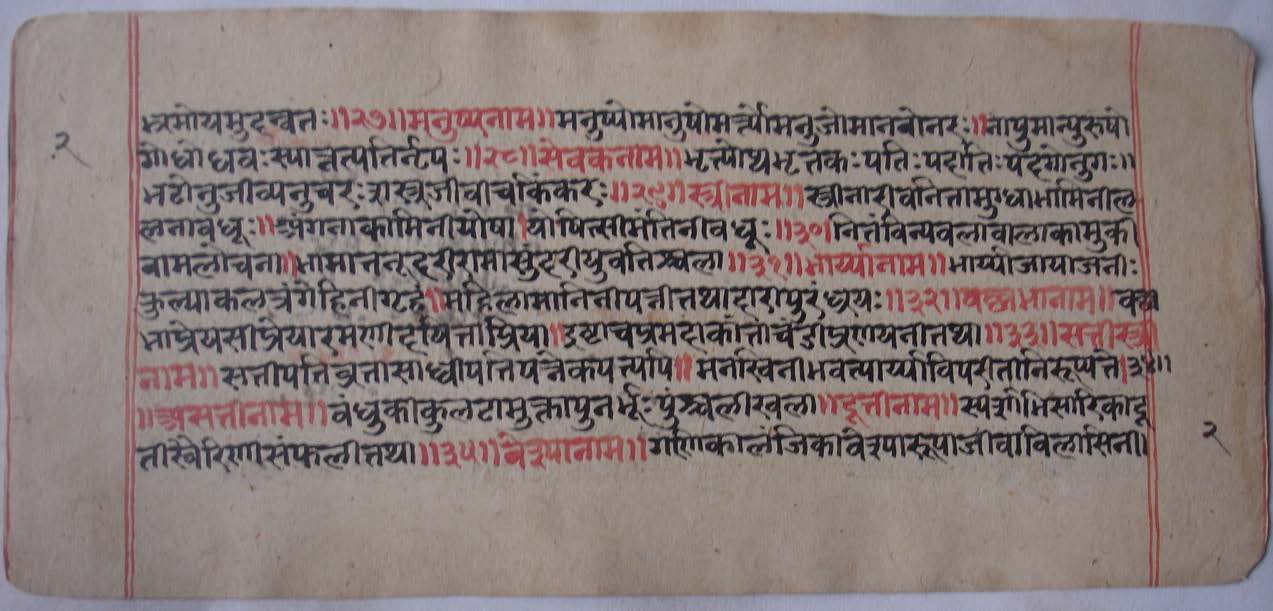 भ्रमोयमुदन्वतः ॥२७॥ मनुष्यनाम ॥ मनुष्योमानुषोमर्त्योमनुजोमानवोनरः ॥ नापुमान्पुरुषो
गोधोधवः स्यान्नत्पतिर्नृपः ॥२८॥ सेवकनाम ॥ भृत्योथभृत्तकः पतिः पदातिः पदगोनुगः ॥
भटोनुजीव्यनुचरः शस्त्रजीवाचकिंकरः ॥२९॥ स्त्रीनाम ॥ स्त्रीनारीवनितामुग्धाभामिनील
लनावधूः ॥ अंगनाकामिनीयोषा । योषित्सीमंतिनीवधूः ॥३०॥ नितंविन्यवलावालाकामुक
वामलोचना ॥ भामातनूदरीरामासुंदरीयुवतिश्चला ॥३१॥ भार्य्यानाम ॥ भार्य्याजायाजनीः
कुल्याकलत्रंगेहिनीगृहं ॥ महिलामानिनीपत्नीतथादारापुरंध्रयः ॥३२॥ वल्लभानाम ॥ वल्ल
भाप्रेयसीप्रेयारमणीदयिताप्रिया ॥ इष्टाचप्रमदाकांताचंडीप्रणयनीतथा ॥३३॥ सतीस्त्री
नाम ॥ सतीपतिंव्रतासाध्वीपतिपत्नेकपत्न्यापि ॥ मनस्विनीभवत्यार्य्याविपरीतानिरूप्यते ।३४॥
॥ असतीनाम ॥ वंधुकीकुलटामुक्तापुनर्भूः पुंश्चलीखला ॥ दूतीनाम ॥ स्पर्शाभिसारिकादू
तीस्वैरिणीसंफलीतथा ॥३५॥ वेश्यानाम ॥ गणिकालंजिकावेश्यारूपाजीवाविलासिनी ।
२
२